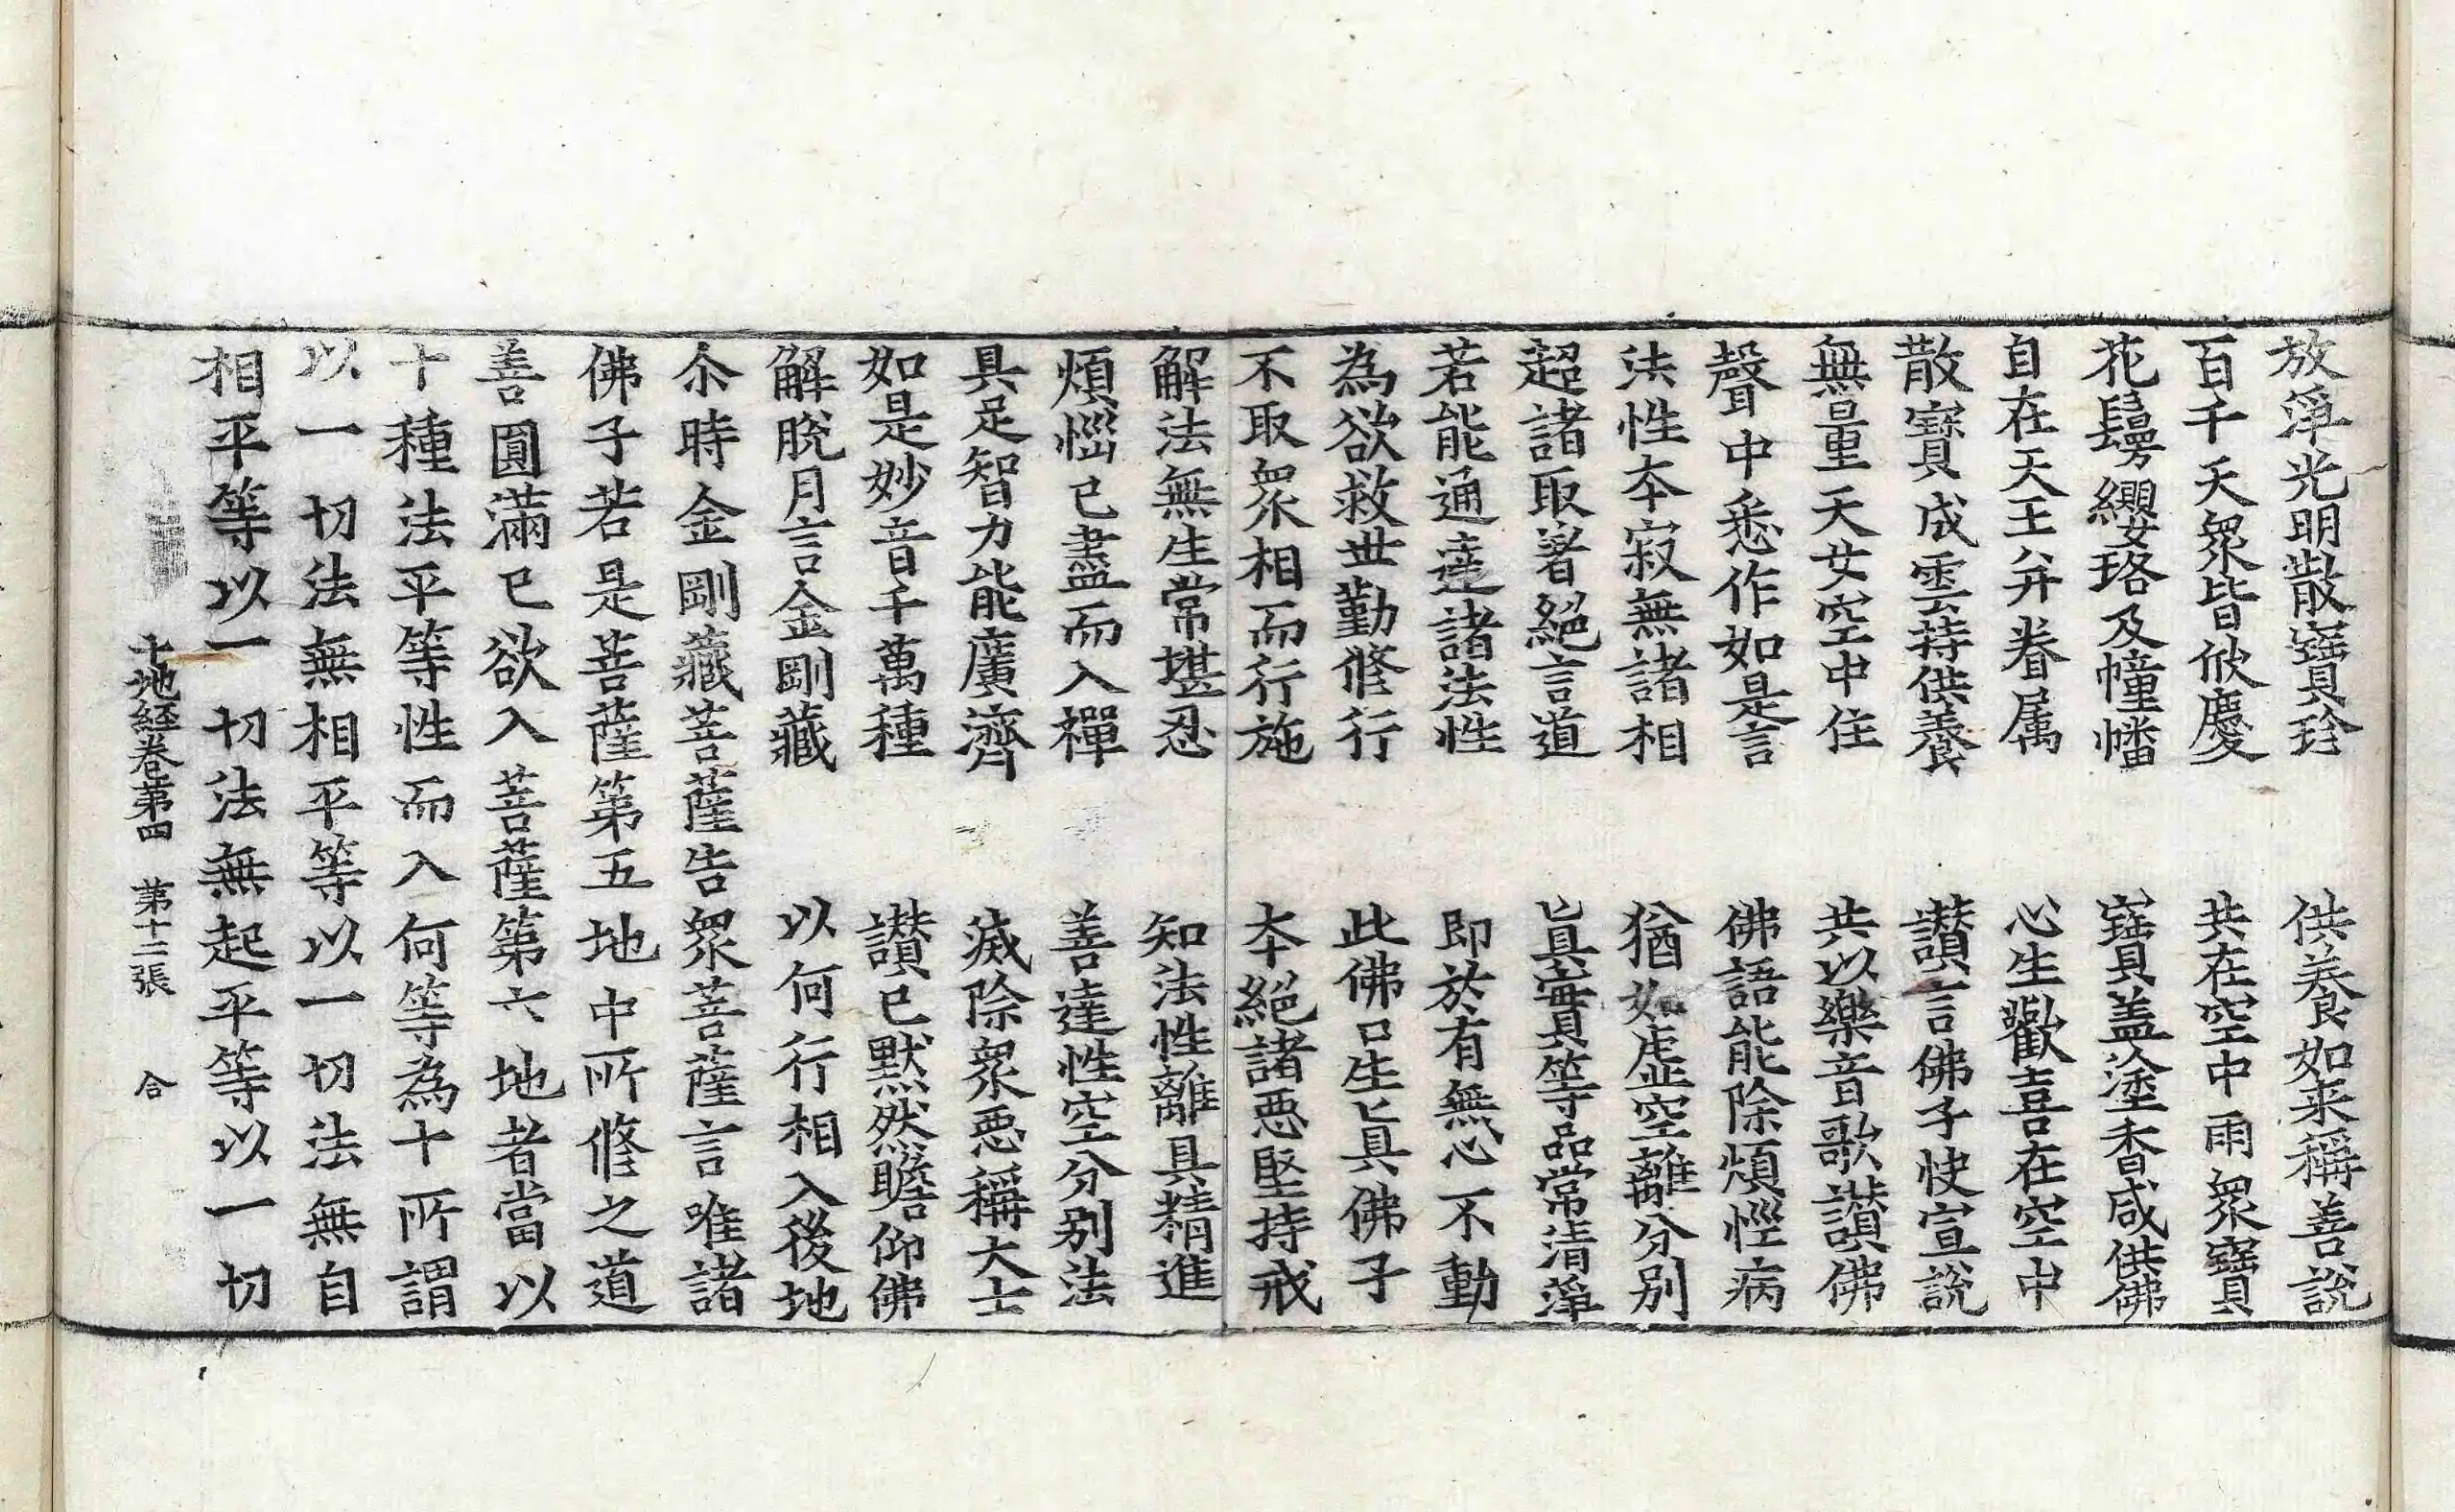 放淨光明散寶珍　供養如来稱善說
百千天衆皆欣慶　共在空中雨衆寶
花鬘纓珞及幢幡　寶盖塗香咸供佛
自在天王并眷属　心生歡喜在空中
散寶成雲持供養　讃言佛子快宣說
無量天女空中住　共以樂音歌讃佛
聲中悉作如是言　佛語能除煩惱病
法性本寂無諸相　猶如虛空離分別
超諸取著絕言道　眞實平等常清淨
若能通達諸法性　即於有無心不動
為欲救世勤修行　此佛口生眞佛子
不取衆相而行施　本絕諸惡堅持戒
解法無生常堪忍　知法性離具精進
煩惱已盡而入禪　善達性空分别法
具足智力能廣濟　滅除衆惡稱大士
如是妙音千萬種　讃已默然瞻仰佛
解脫月言金剛藏　以何行相入後地
尒時金剛藏菩薩告衆菩薩言唯諸
佛子若是菩薩第五地中所修之道
善圓滿已欲入菩薩第六地者當以
十種法平等性而入何等為十所謂
以一切法無相平等以一切法無自
相平等以一切法無起平等以一切
十地経卷第四　第十二張　合